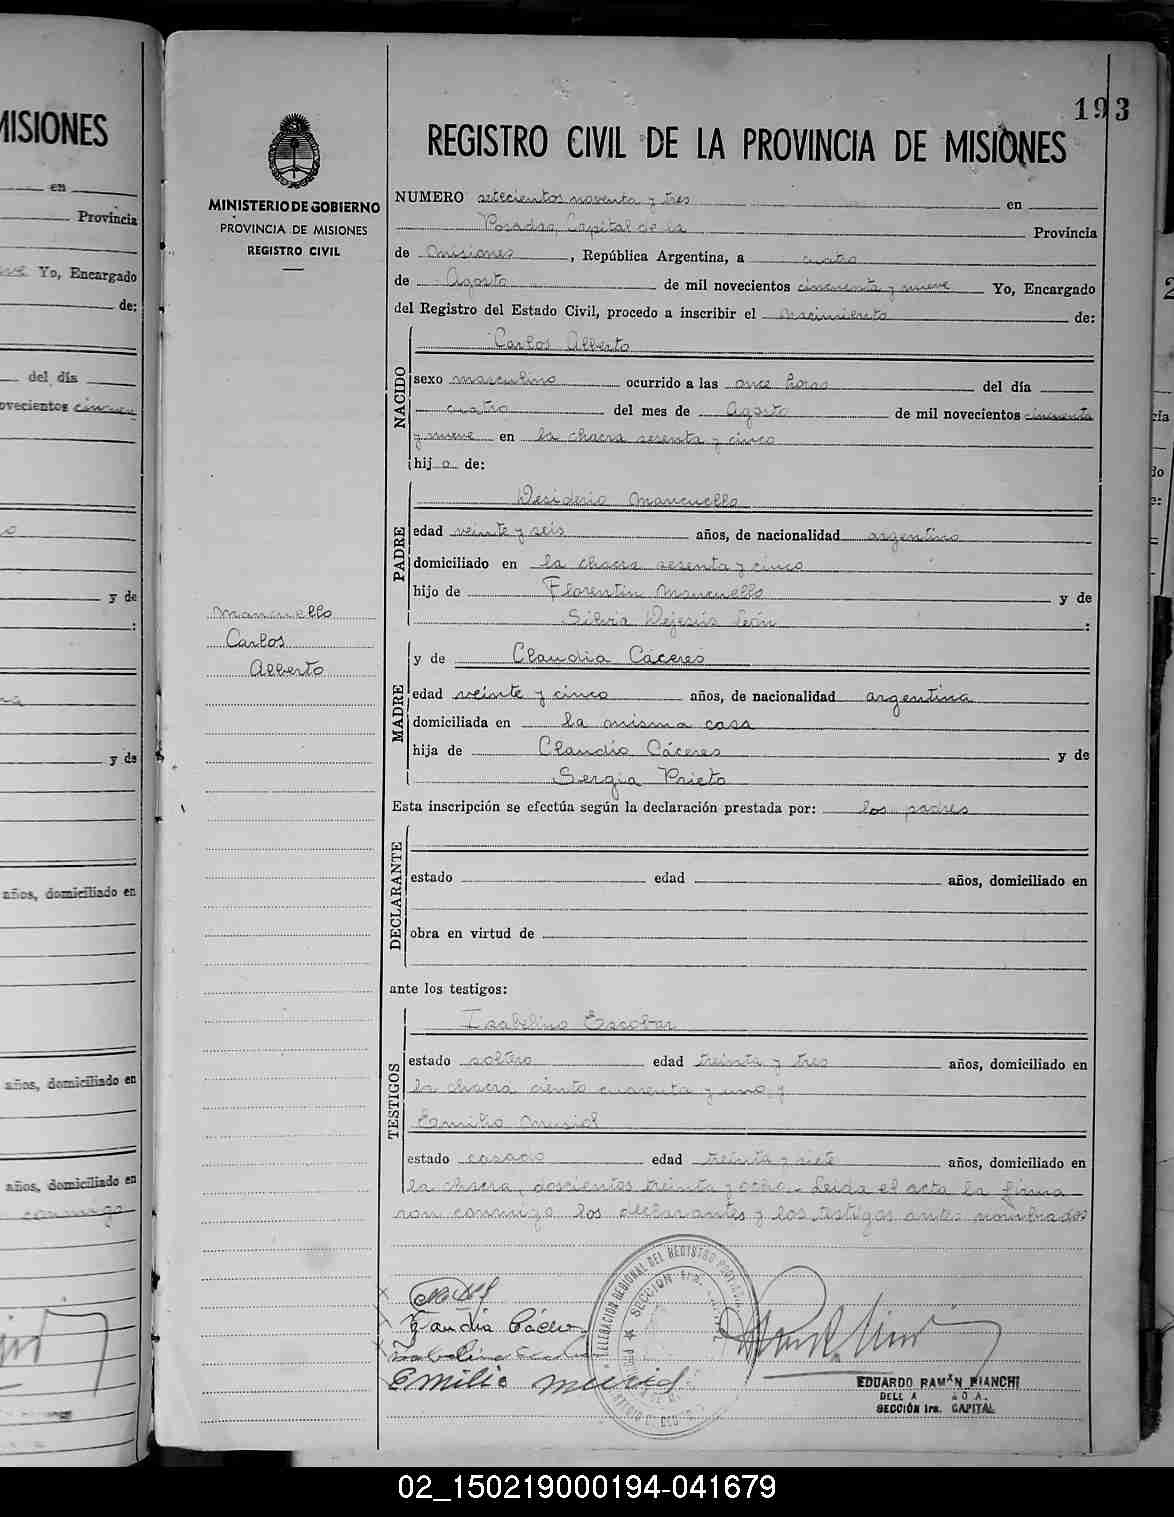 MISIONES
en
Provincia
Yo, Encargado
de:
del día
ovecientos cincuen
y de
:
y de
años, domiciliado en
años, domiciliado en
años, domiciliado en
conmigo
193
REGISTRO CIVIL DE LA PROVINCIA DE MISIONES
MINISTERIO DE GOBIERNO
PROVINCIA DE MISIONES
REGISTRO CIVIL
NUMERO setecientos noventa y tres en
Posadas, Capital de la Provincia
de Misiones, República Argentina, a cuatro
de Agosto de mil novecientos cincuenta y nueve Yo, Encargado
del Registro del Estado Civil, procedo a inscribir el nacimiento de:
NACIDO
Carlos Alberto
sexo masculino ocurrido a las once horas del día
cuatro del mes de Agosto de mil novecientos cincuenta
y nueve en la chacra sesenta y cinco
hij o de:
PADRE
Desiderio Mancuello
edad veinte y seis años, de nacionalidad argentino
domiciliado en la chacra sesenta y cinco
hijo de Florentin Mancuello y de
Silvia Dejesús León :
Mancuello
Carlos
Alberto
MADRE
y de Claudia Cáceres
edad veinte y cinco años, de nacionalidad argentina
domiciliada en la misma casa
hija de Claudio Cáceres y de
Sergia Prieto
Esta inscripción se efectúa según la declaración prestada por: los padres
DECLARANTE
estado edad años, domiciliado en
obra en virtud de
ante los testigos:
TESTIGOS
Isabelino Escobar
estado soltero edad treinta y tres años, domiciliado en
la chacra ciento cuarenta y uno, y
Emilio Musiol
estado casado edad treinta y siete años, domiciliado en
la chacra, doscientos treinta y ocho. Leida el acta la firma
ron conmigo los declarantes y los testigos antes nombrados
Claudia Cáceres
Isabelino Escobar
Emilio Musiol
DELEGACION REGIONAL DEL REGISTRO PROVINCIAL
SECCION 1ra. CAPITAL
EDUARDO RAMÓN BIANCHI
SECCIÓN 1ra. CAPITAL
02_150219000194-041679